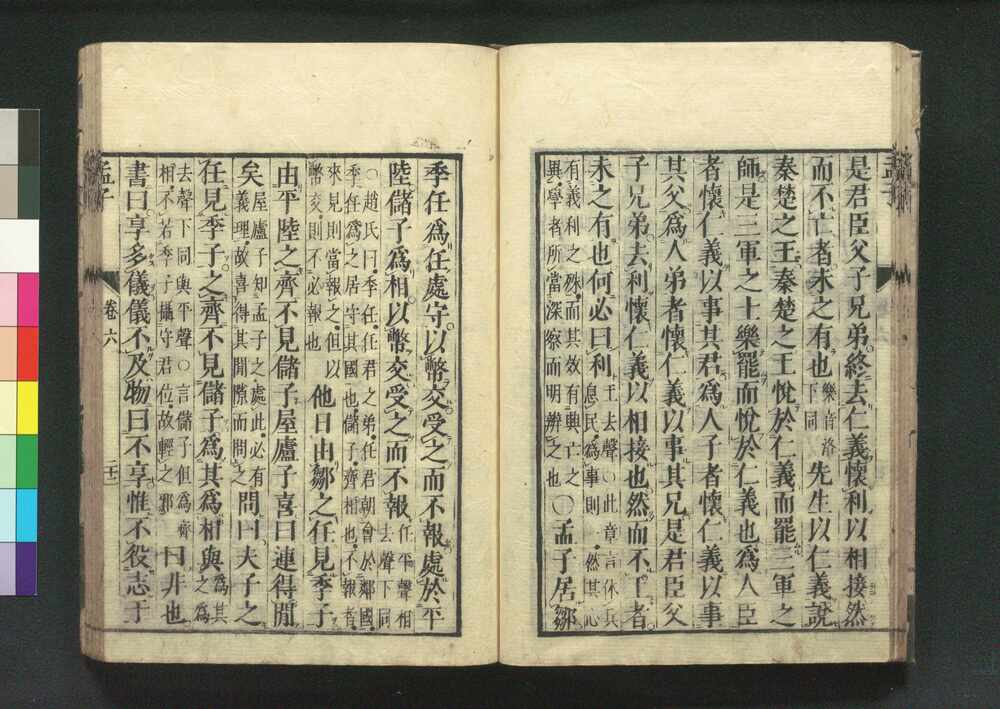 是君臣父子兄弟終去仁義懷利以相接然
而不亡者未之有也樂音洛下同先生以仁義說
秦楚之王秦楚之王悅於仁義而罷三軍之
師是三軍之士樂罷而悅於仁義也爲人臣
者懷仁義以事其君爲人子者懷仁義以事
其父爲人弟者懷仁義以事其兄是君臣父
子兄弟去利懷仁義以相接也然而不王者
未之有也何必曰利王去聲○此章言休兵息民爲事則一然其心
有義利之殊而其效有興亡之異學者所當深察而明辨之也○孟子居鄒
季任爲任處守以幣交受之而不報處於平
陸儲子爲相以幣交受之而不報任平聲相去聲下同
○趙氏曰季任任君之弟任君朝會於鄰國季任爲之居守其國也儲子齊相也不報者
來見則當報之但以幣交則不必報也他日由鄒之任見季子
由平陸之齊不見儲子屋廬子喜曰連得閒
矣屋廬子知孟子之處此必有義理故喜得其閒隙而問之問曰夫子之
任見季子之齊不見儲子爲其爲相與爲其之爲
去聲下同與平聲○言儲子但爲齊相不若季子攝守君位故輕之邪曰非也
書曰享多儀儀不及物曰不享惟不役志于
孟子
孟子
卷六